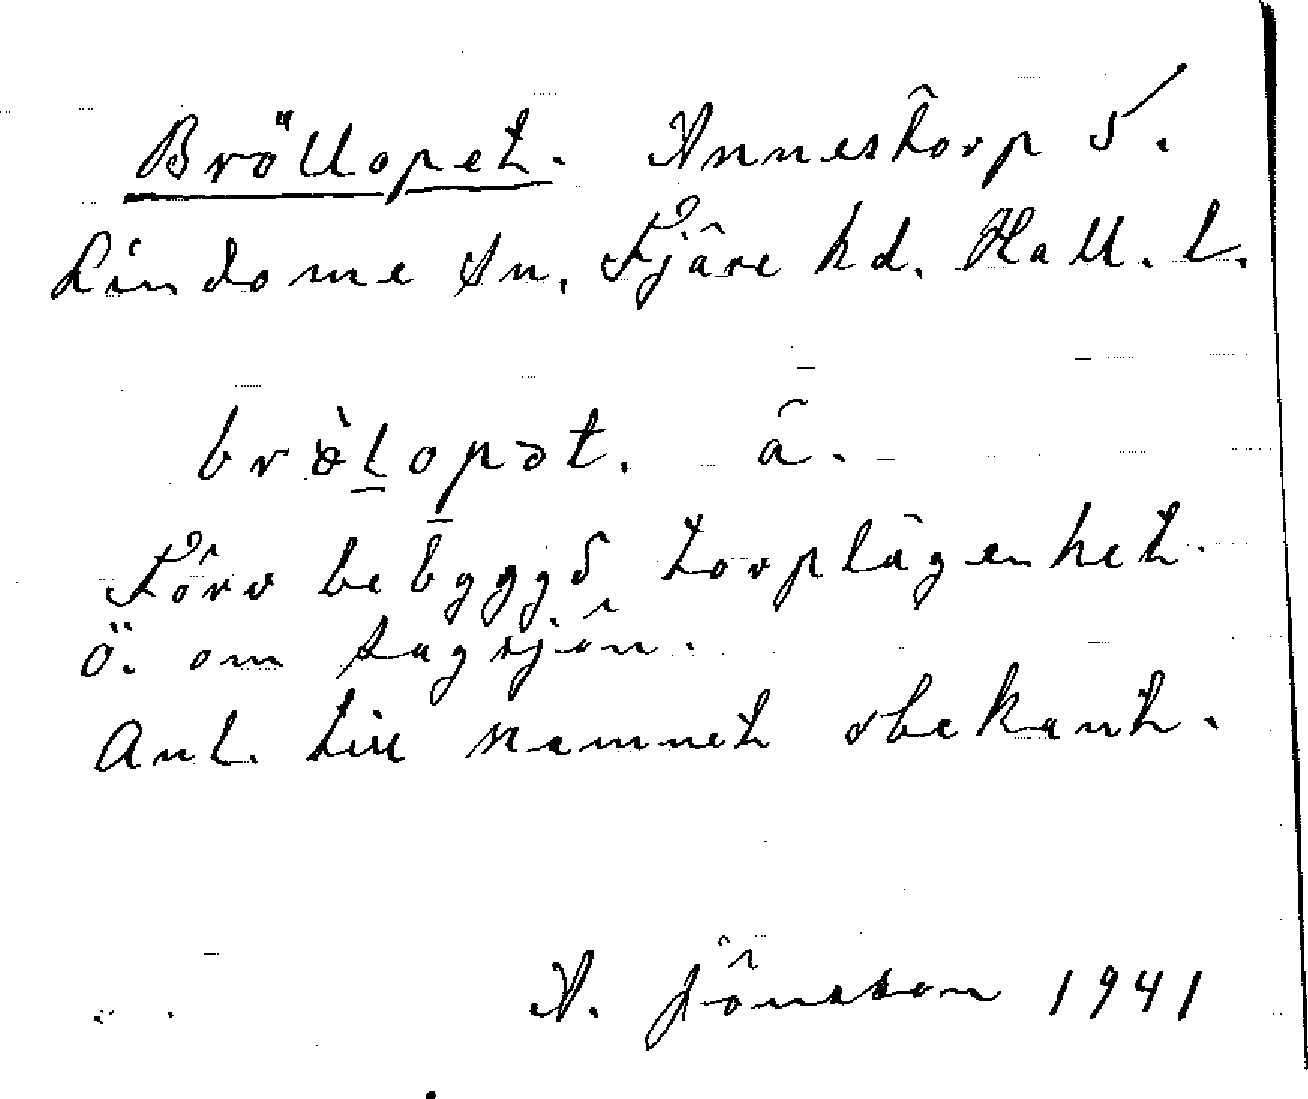 Bröllopet. Annestorp S.
Lindome sn. Fjäre hd. Hall. l.
brö̀lopət. ä.
Förr bebyggd torplägenhet
Ö. om Sagsjön.
Anl. till namnet obekant.
A. Jönsson 1941